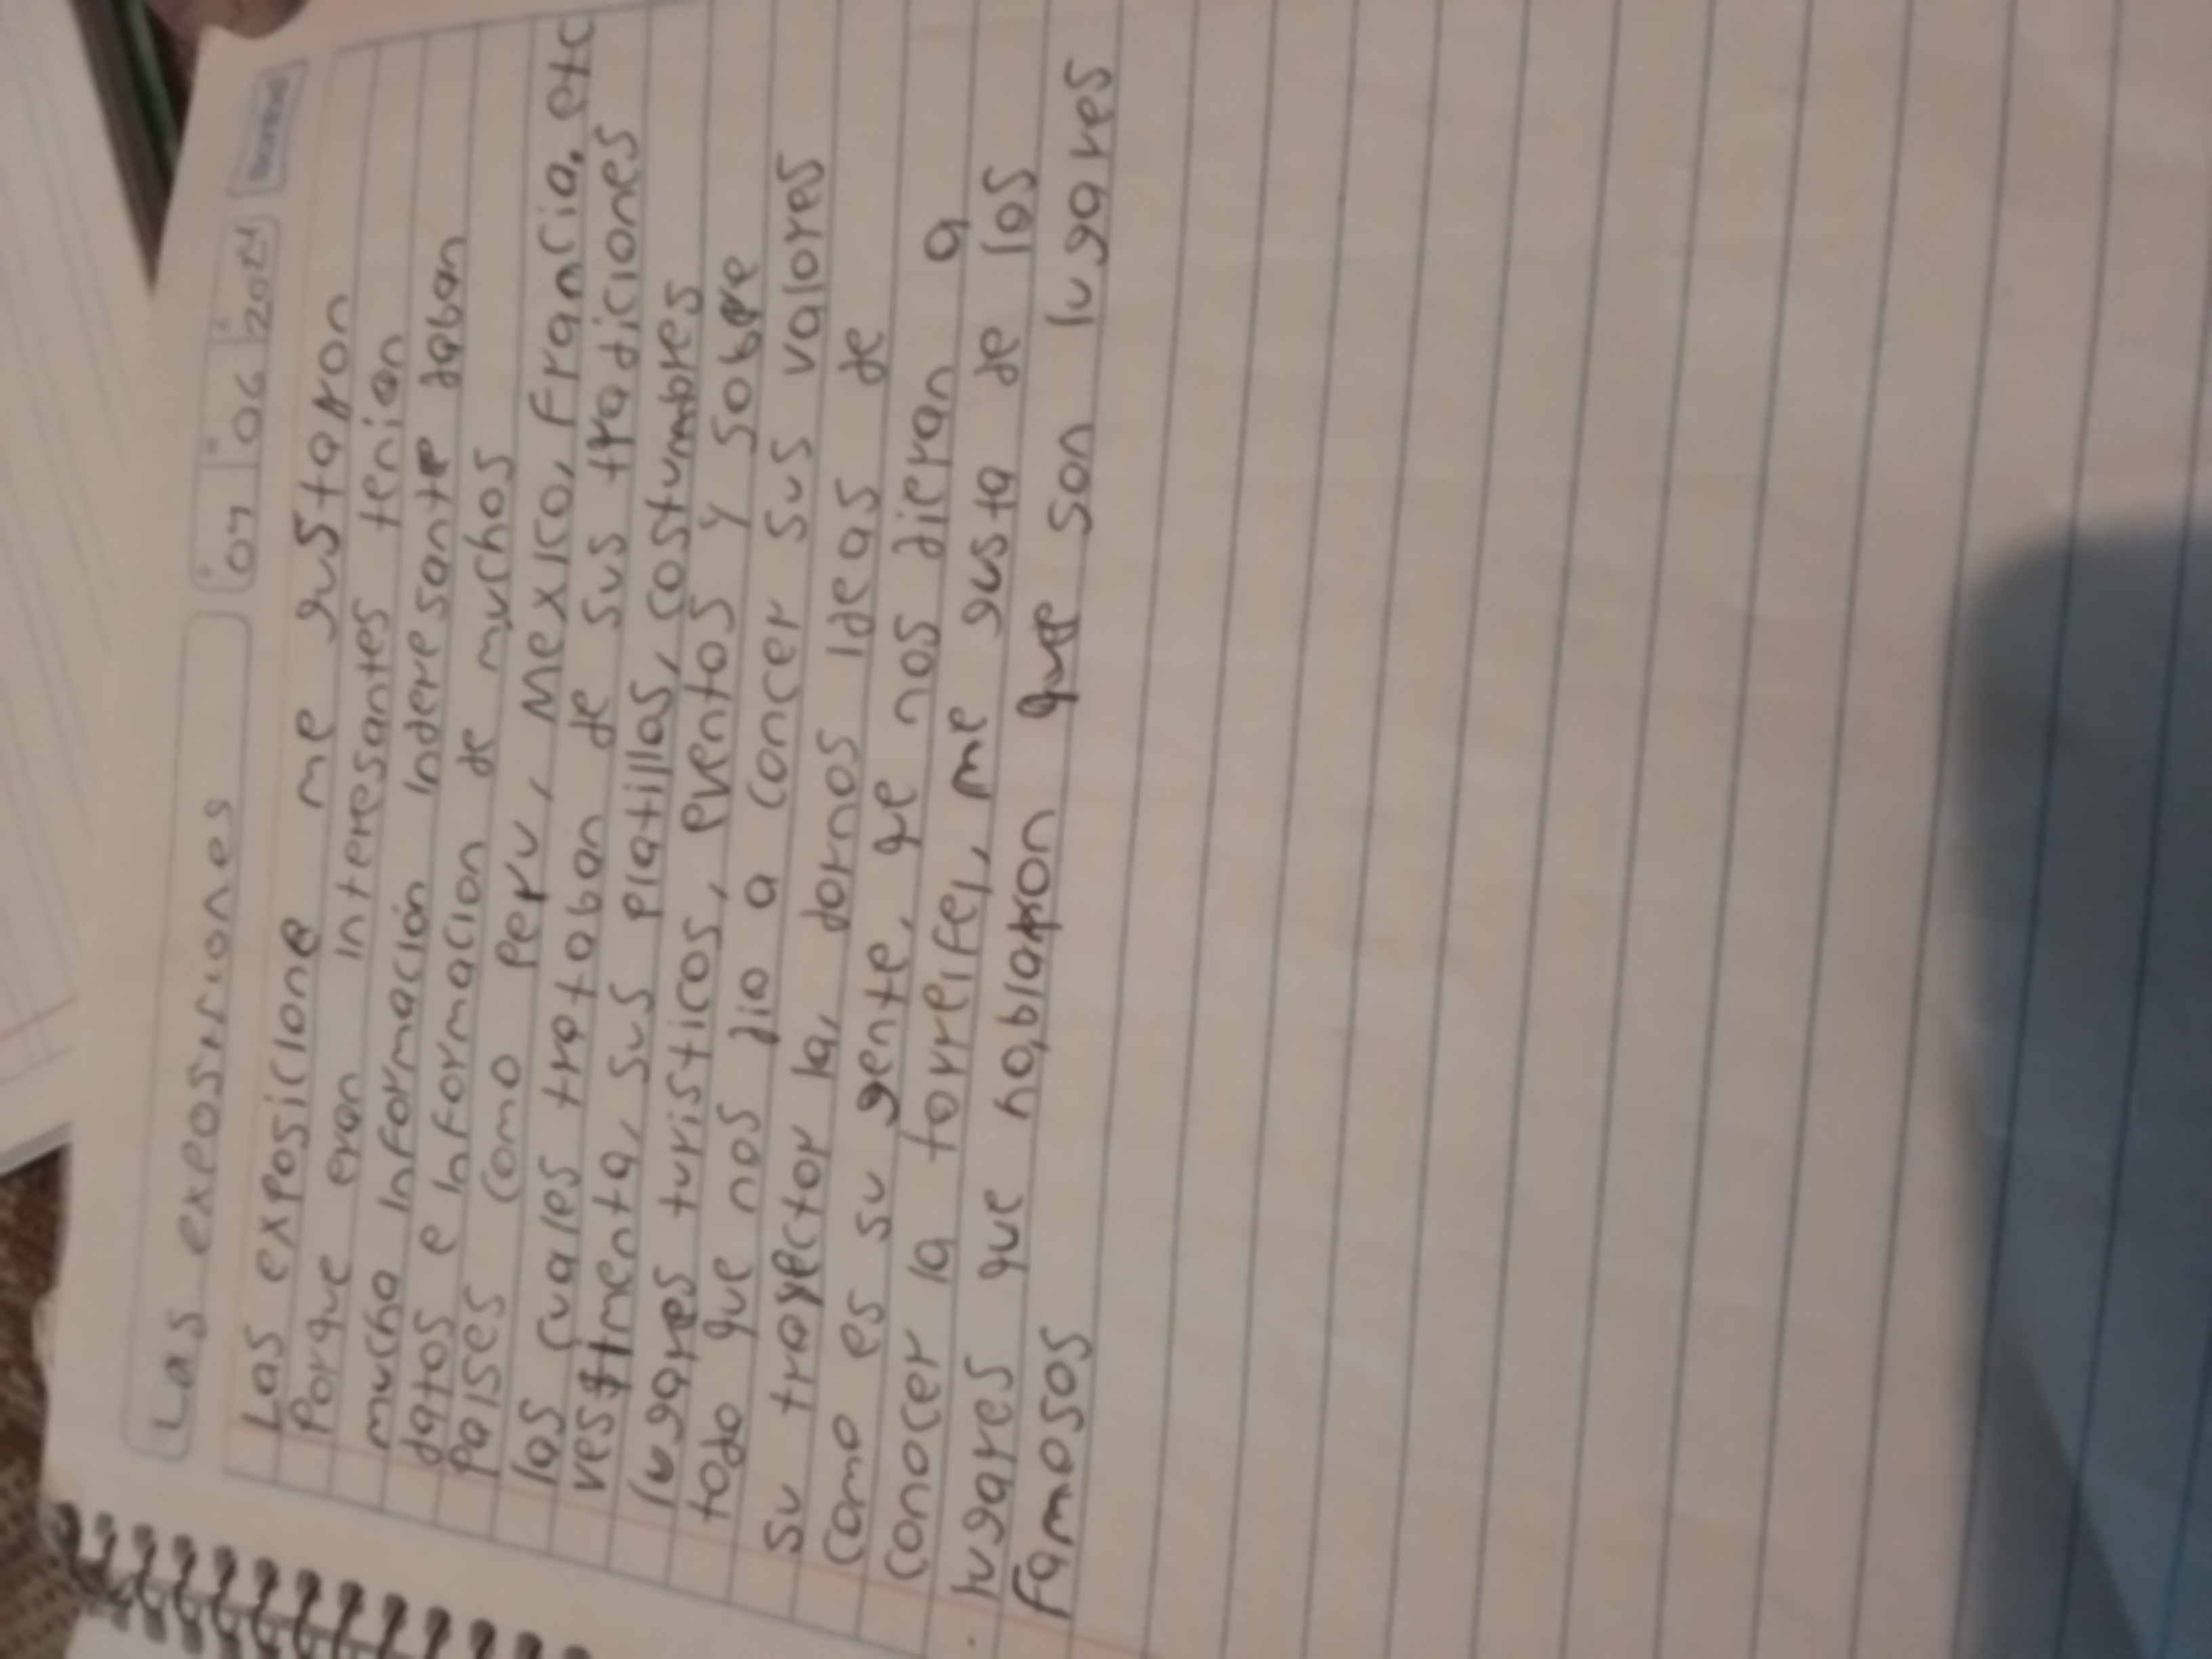 Las exposiciones
07 06 2024
Las exposicione me gustaron
Porque eran interesantes tenian
mucha información inderesante daban
datos e informacion de muchos
paises como peru, Mexico, Francia. etc
las cuales trataban de sus tradiciones
vestimenta, sus platillos, costumbres
lugares turisticos, eventos y sobre
todo que nos dio a concer sus valores
su trayector ia, dornos ideas de
como es su gente, que nos dieran a
conocer la torreifel, me gusta de los
lugares que hablaron que son lugares
famosos